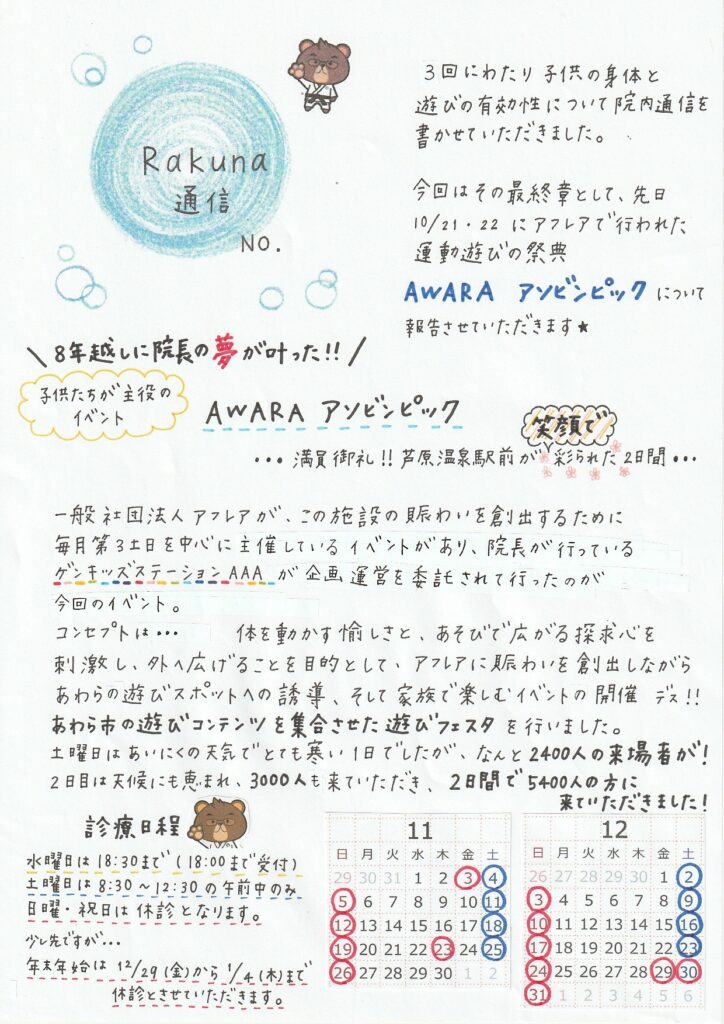 Rakuna
通信
NO.
3回にわたり子供の身体と
遊びの有効性について院内通信を
書かせていただきました。
今回はその最終章として、先日
10/21・22にアフレアで行われた
運動遊びの祭典
AWARA アソビンピックについて
報告させていただきます★
\8年越しに院長の夢が叶った!!/
子供たちが主役の
イベント
AWARA アソビンピック
笑顔で
・・・満員御礼!!芦原温泉駅前が彩られた2日間・・・
一般社団法人アフレアが、この施設の賑わいを創出するために
毎月第3土日を中心に主催しているイベントがあり、院長が行っている
ゲンキッズステーションAAAが企画運営を委託されて行ったのが
今回のイベント。
コンセプトは・・・ 体を動かす愉しさと、あそびで広がる探求心を
刺激し、外へ広げることを目的として、アフレアに賑わいを創出しながら
あわらの遊びスポットへの誘導、そして家族で楽しむイベントの開催デス!!
あわら市の遊びコンテンツを集合させた遊びフェスタを行いました。
土曜日はあいにくの天気でとても寒い1日でしたが、なんと2400人の来場者が!
2日目は天候にも恵まれ、3000人も来ていただき、2日間で5400人の方に
来ていただきました!
診療日程
水曜日は18:30まで(18:00まで受付)
土曜日は8:30~12:30の午前中のみ
日曜・祝日は休診となります。
少し先ですが・・・
年末年始は12/29(金)から1/4(木)まで
休診とさせていただきます。
11
日 月 火 水 木 金 土
29 30 31 1 2 3 4
5 6 7 8 9 10 11
12 13 14 15 16 17 18
19 20 21 22 23 24 25
26 27 28 29 30 1 2
12
日 月 火 水 木 金 土
26 27 28 29 30 1 2
3 4 5 6 7 8 9
10 11 12 13 14 15 16
17 18 19 20 21 22 23
24 25 26 27 28 29 30
31 1 2 3 4 5 6